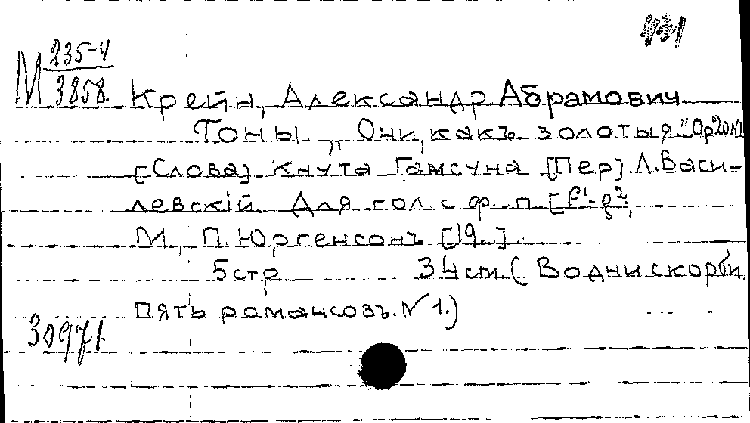 М 235-4
3858
Крейн, Александр Абрамович
Тоны „Они, какъ золотыя
[Слова] Кнута Гамсуна [Пер] Л. Васи-
левскій. Для гол. с ф. п. [f¹-g²]
М., П. Юргенсонъ [19..]
5 стр 34 см (Водни скорби
Пять романсовъ. № 1.)
30971